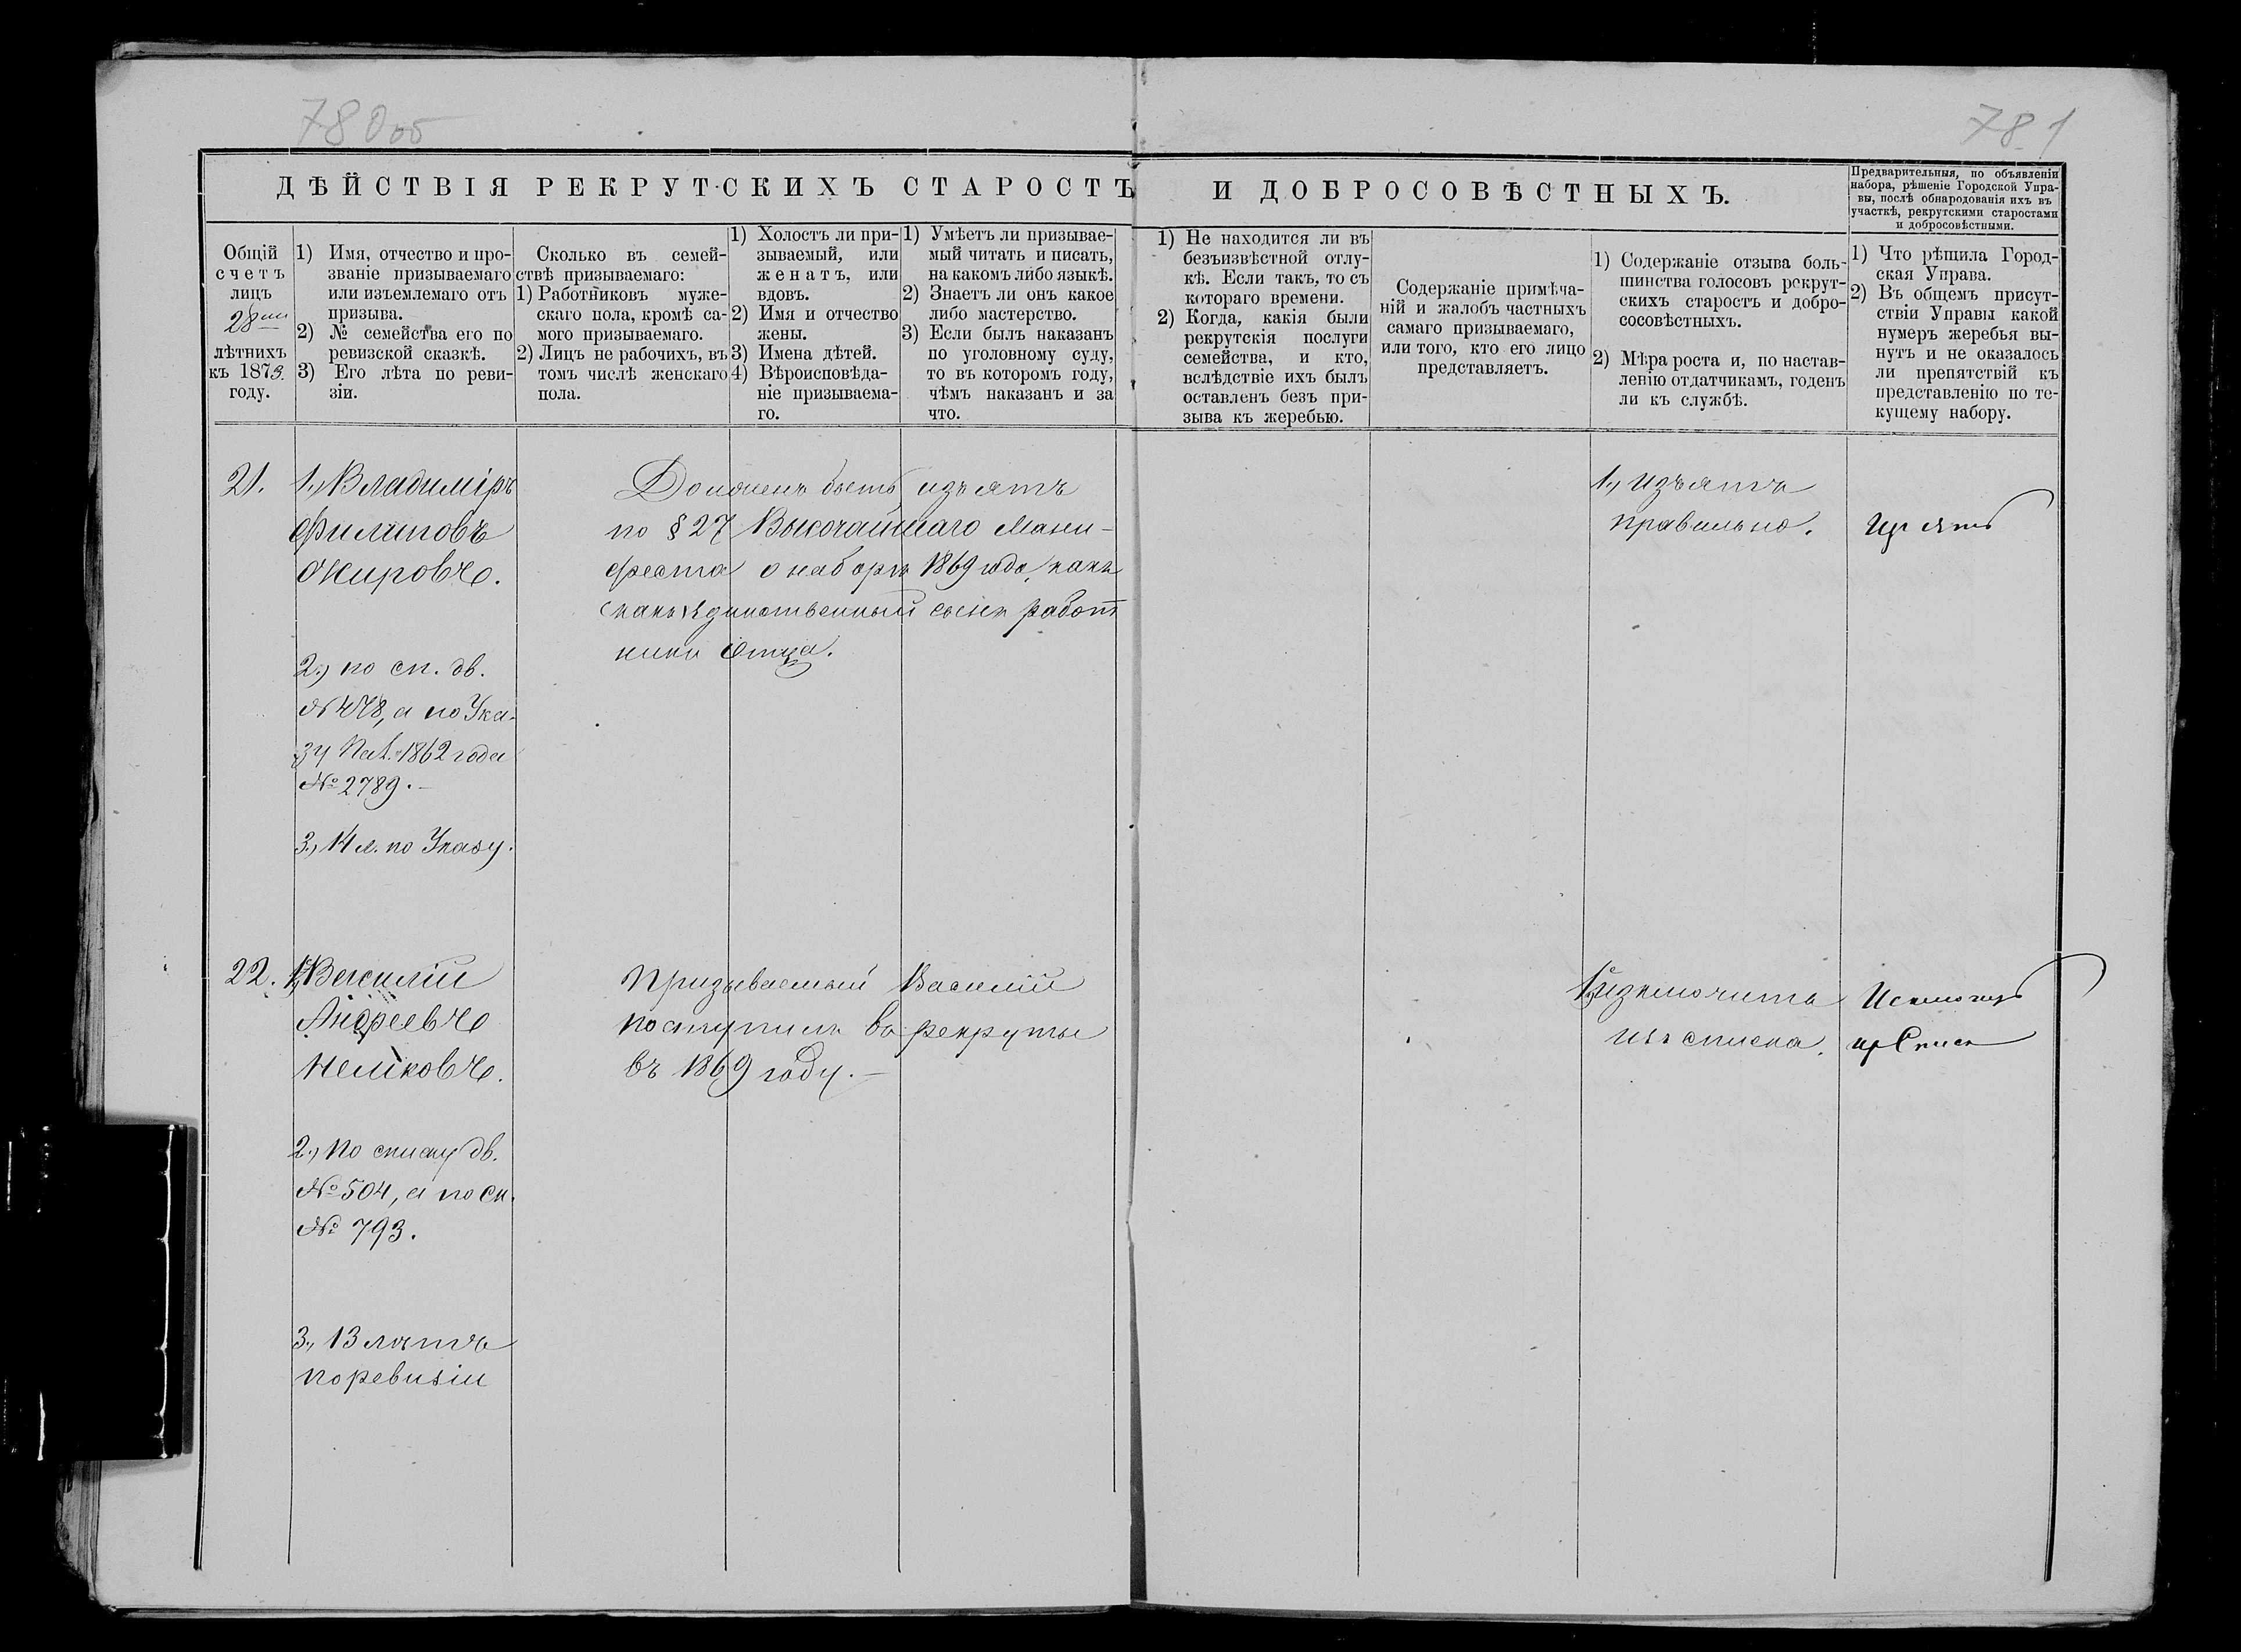 780об
781
ДѢЙСТВІЯ РЕКРУТСКИХЪ СТАРОСТЪ И ДОБРОСОВѢСТНЫХЪ.
Предварительныя, по объявленіи
набора, рѣшеніе Городской Упра-
вы, послѣ обнародованія ихъ въ
участкѣ, рекрутскими старостами
и добросовѣстными.
Общій
счетъ
лицъ
28ми
лѣтнихъ
къ 1873.
году.
1) Имя, отчество и про-
званіе призываемаго
или изъемлемаго отъ
призыва.
2) № семейства его по
ревизской сказкѣ.
3) Его лѣта по реви-
зіи.
Сколько въ семей-
ствѣ призываемаго:
1) Работниковъ муже-
скаго пола, кромѣ са-
мого призываемаго.
2) Лицъ не рабочихъ, въ
томъ числѣ женскаго
пола.
1) Холостъ ли при-
зываемый, или
женатъ, или
вдовъ.
2) Имя и отчество
жены.
3) Имена дѣтей.
4) Вѣроисповѣда-
ніе призываема-
го.
1) Умѣетъ ли призывае-
мый читать и писать,
на какомъ либо языкѣ.
2) Знаетъ ли онъ какое
либо мастерство.
3) Если былъ наказанъ
по уголовному суду,
то въ которомъ году,
чѣмъ наказанъ и за
что.
1) Не находится ли въ
безъизвѣстной отлу-
кѣ. Если такъ, то съ
котораго времени.
2) Когда, какія были
рекрутскія послуги
семейства, и кто,
вслѣдствіе ихъ былъ
оставленъ безъ при-
зыва къ жеребью.
Содержаніе примѣча-
ній и жалобъ частныхъ
самаго призываемаго,
или того, кто его лицо
представляетъ.
1) Содержаніе отзыва боль-
шинства голосовъ рекрут-
скихъ старостъ и добро-
сосовѣстныхъ.
2) Мѣра роста и, по настав-
ленію отдатчикамъ, годенъ
ли къ службѣ.
1) Что рѣшила Город-
ская Управа.
2) Въ общемъ присут-
ствіи Управы какой
нумеръ жеребья вы-
нутъ и не оказалось
ли препятствій къ
представленію по те-
кущему набору.
21.
1., Владиміръ
Филиповъ
2., по сп. дв.
№ 478, а по Ука-
зу Пал. 1862 года
№ 2789. –
3., 14 л. по Указу.
Долженъ быть изъятъ
по § 27 Высочайшаго Мани-
феста о наборѣ 1869 года, какъ
единственный сынъ работ
никъ Отца.
1., изъятъ
правильно.
Изъять
22.
1., Василій
Андреевъ
2., по списку дв.
№ 504, а по сп.
№ 793.
3., 13 лѣтъ
по ревизіи
Призываемый Василій
поступилъ въ рекруты
въ 1869 году. –
1., изключить
изъ списка.
Исключить
из Списк